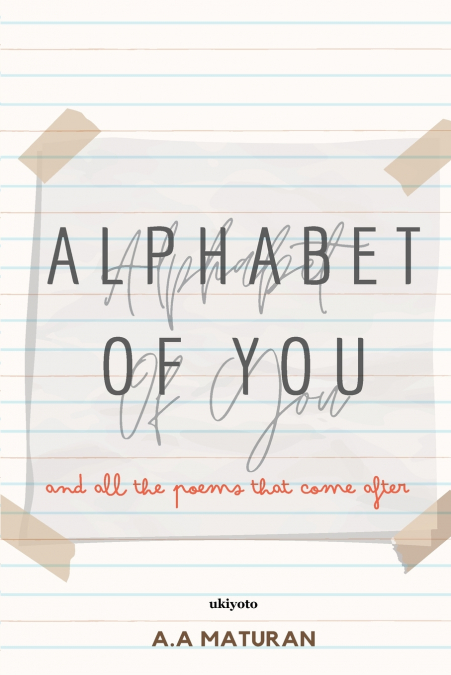 ALPHABET
Alphabet
OF YOU
Of You
and all the poems that come after
ukiyoto
A.A MATURAN